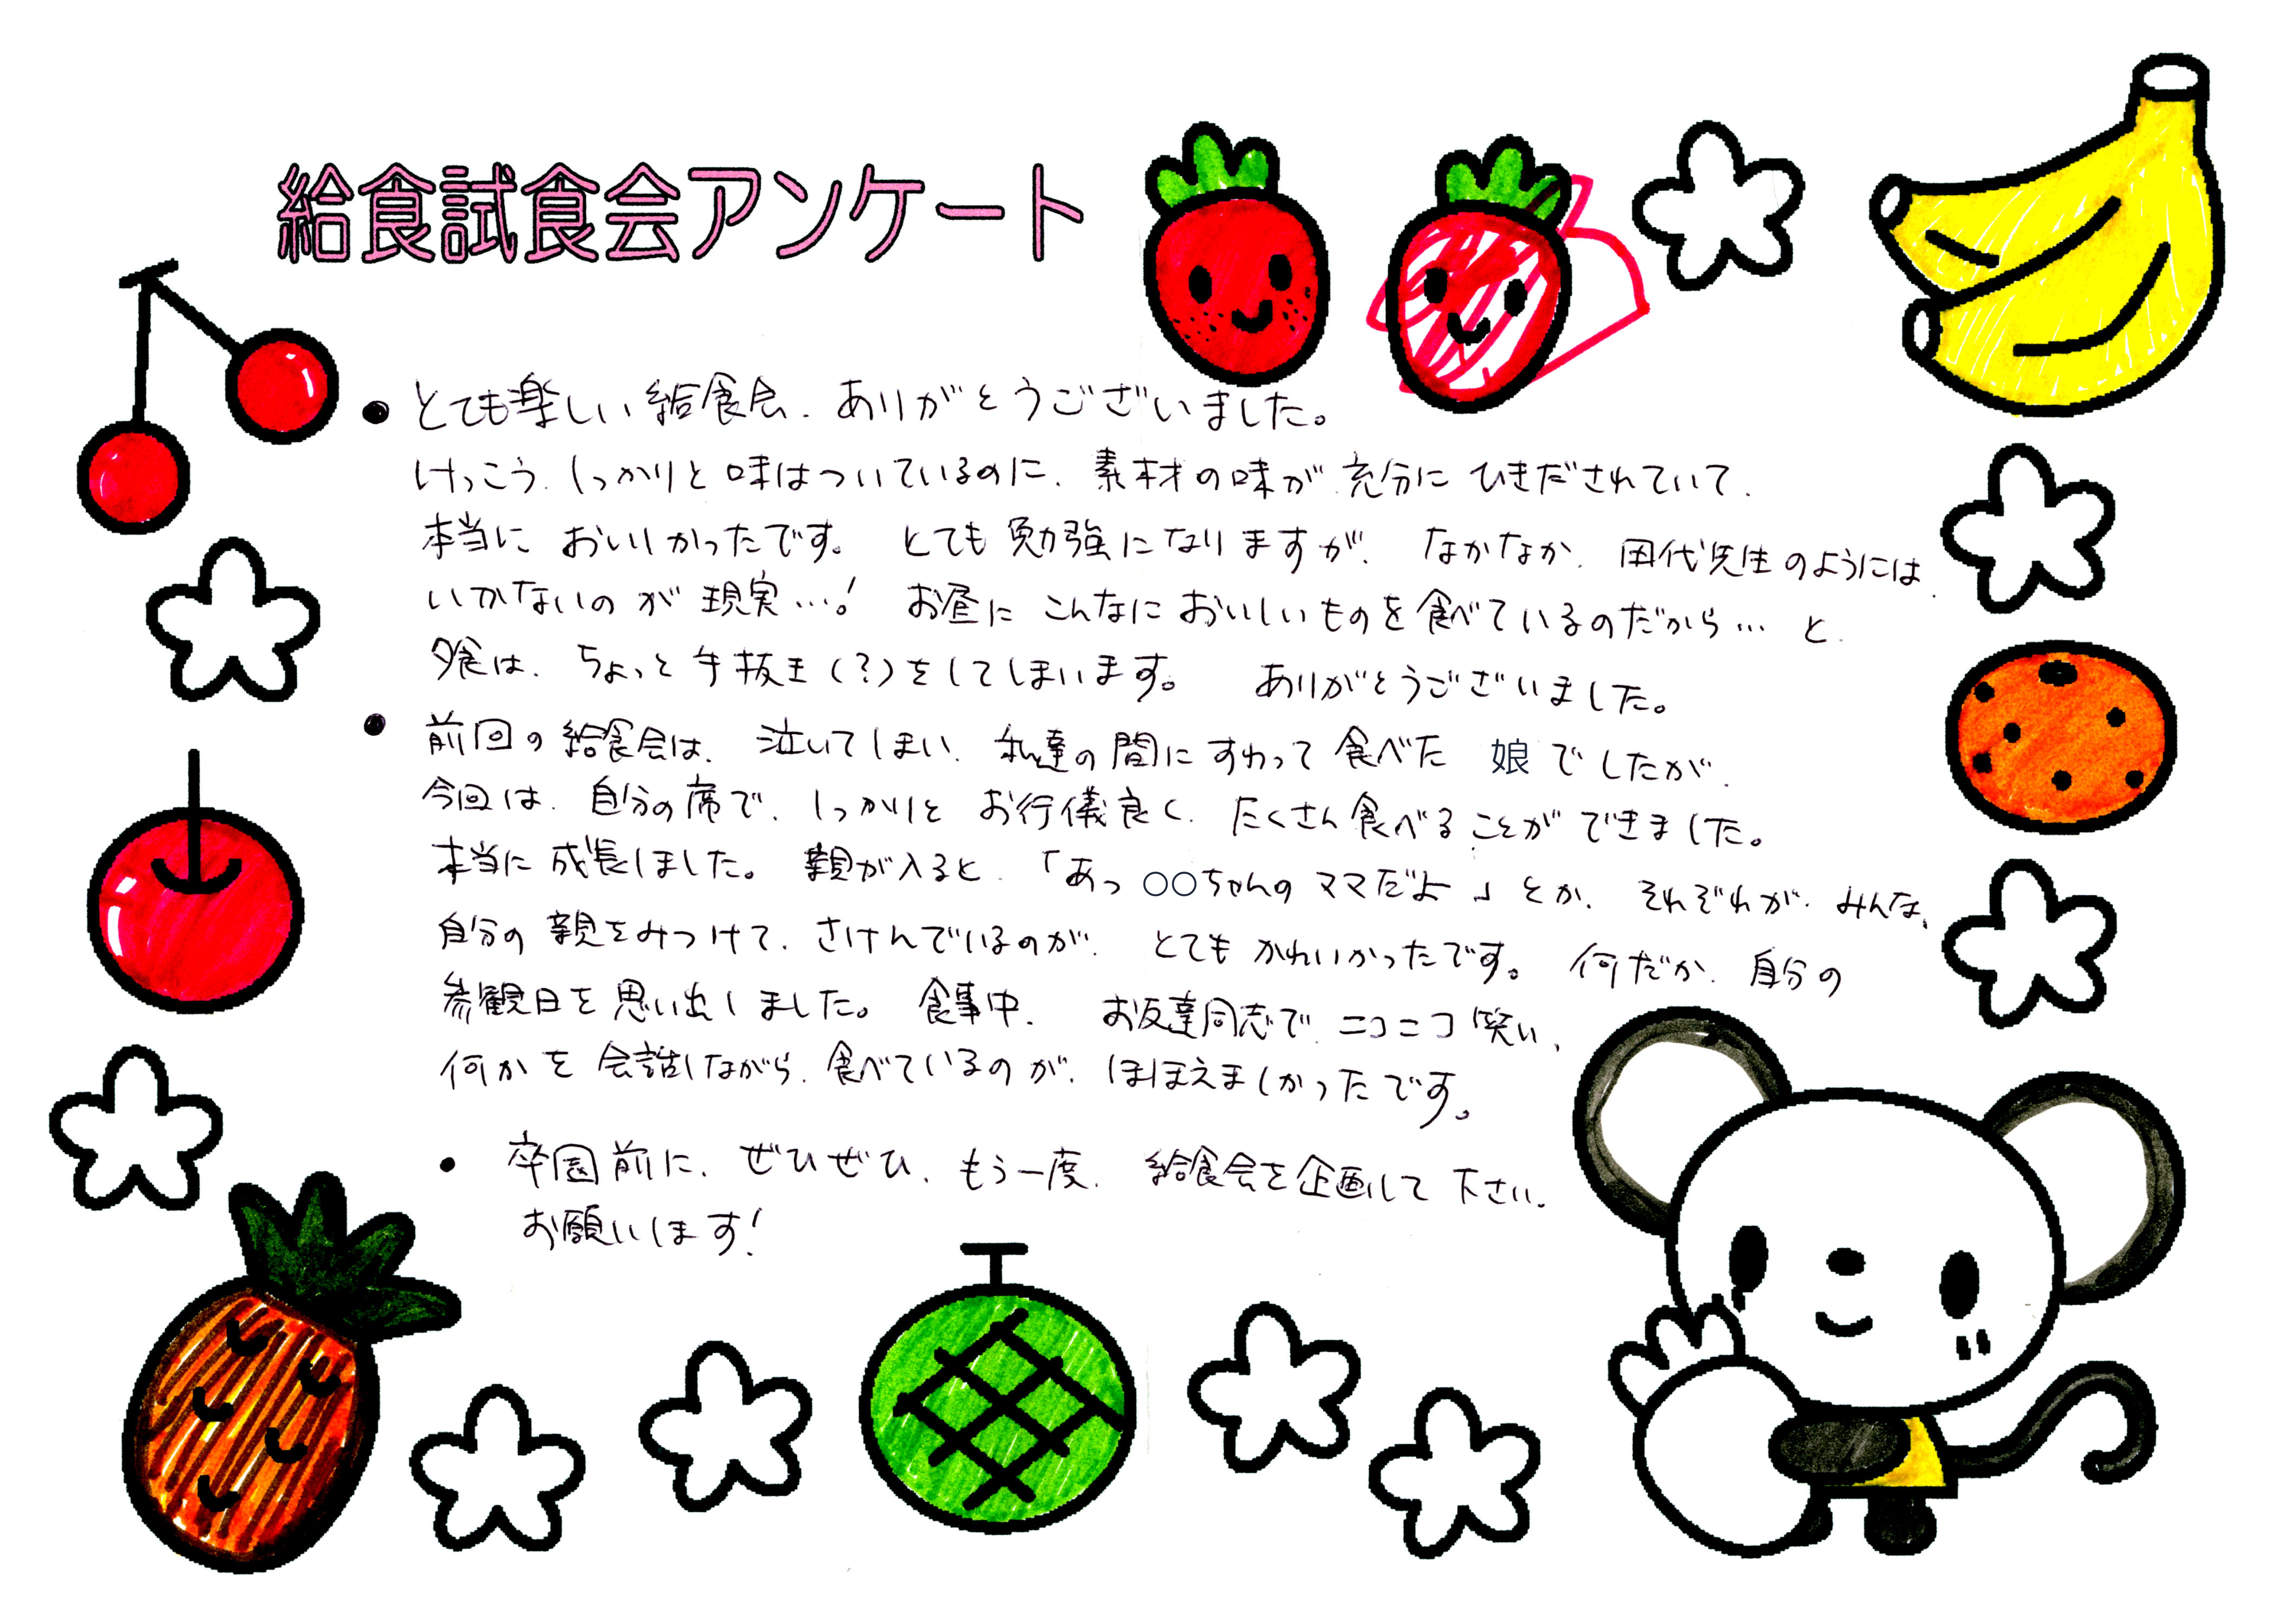 給食試食会アンケート
● とても楽しい給食会、ありがとうございました。
けっこう、しっかりと味はついているのに、素材の味が充分にひきだされていて、
本当においしかったです。とても勉強になりますが、なかなか、田代先生のようには、
いかないのが現実…! お昼にこんなにおいしいものを食べているのだから… と、
夕食は、ちょっと手抜き(?)をしてしまいます。 ありがとうございました。
● 前回の給食会は、泣いてしまい、私達の間にすわって食べた 娘でしたが、
今回は、自分の席で、しっかりとお行儀良く、たくさん食べることができました。
本当に成長しました。親が入ると、「あっ○○ちゃんのママだよ」とか、それぞれが、みんな、
自分の親をみつけて、さけんでいるのが、とてもかわいかったです。何だか、自分の
参観日を思い出しました。食事中、お友達同志で、ニコニコ笑い、
何かを会話しながら、食べているのが、ほほえましかったです。
● 卒園前に、ぜひぜひ、もう一度、給食会を企画して下さい。
お願いします!